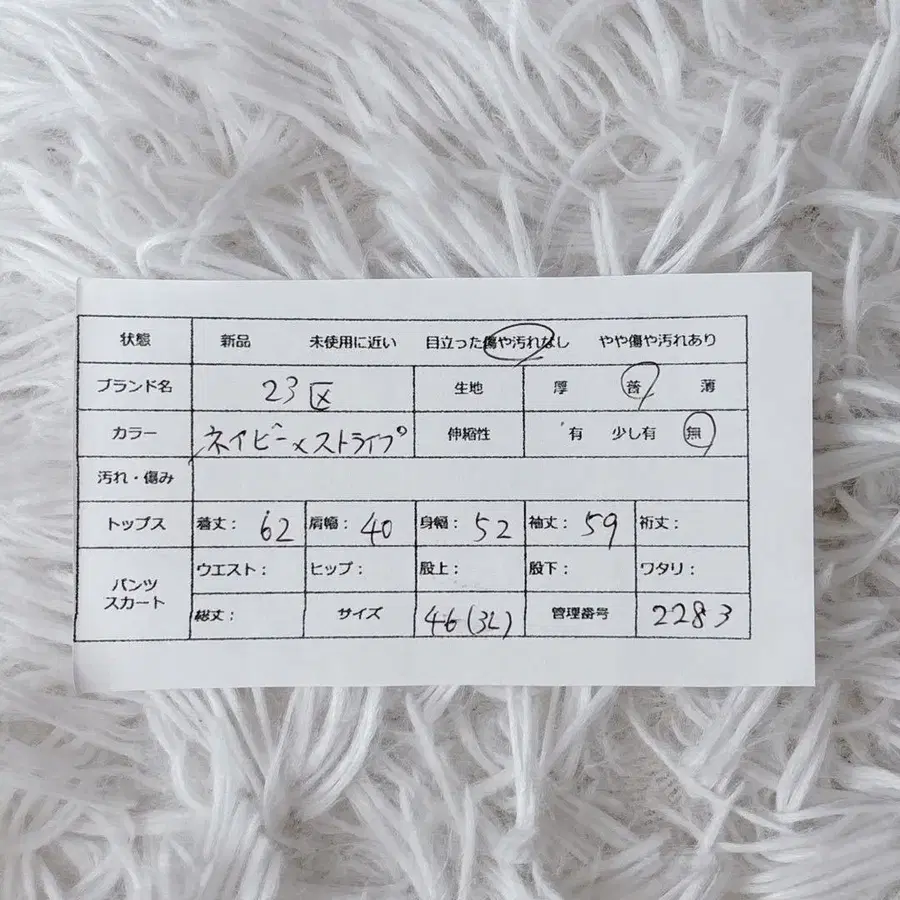 状態 新品 未使用に近い 目立った傷や汚れなし やや傷や汚れあり
ブランド名 23区 生地 厚 普 薄
カラー ネイビー×ストライプ 伸縮性 有 少し有 無
汚れ・傷み
トップス 着丈: 62 肩幅: 40 身幅: 52 袖丈: 59 裄丈:
パンツ スカート ウエスト: ヒップ: 股上: 股下: ワタリ:
総丈: サイズ 46(3L) 管理番号 2283